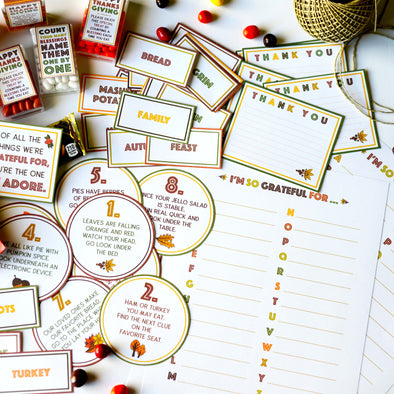 HAPPY
THANKS
GIVING
PLEASE ENJOY
COUNT
YOUR MANY
BLESSINGS
NAME
THEM
ONE
BY
ONE
HAPPY
THANKS
GIVING
PLEASE ENJOY
OF ALL THE
THINGS WE'RE
GRATEFUL FOR,
YOU'RE THE ONE
ADORE.
BREAD
MASHED
POTATO
FAMILY
FEAST
TURKEY
THANK YOU
THANK YOU
THANK YOU
I'M SO GRATEFUL FOR...
I'M SO
E
F
G
U
L
M
N
O
P
Q
R
S
T
U
V
W
X
Y
Z
5.
PIES HAVE
8.
YOUR JELLO SALAD
IS STABLE.
IN REAL QUICK AND
LOOK UNDER THE
TABLE.
1.
LEAVES ARE FALLING
ORANGE AND RED.
WATCH YOUR HEAD,
GO LOOK UNDER
THE BED
4.
ALL LIKE PIE WITH
PUMPKIN SPICE.
LOOK UNDERNEATH AN
ELECTRONIC DEVICE.
7.
OUR LOVED ONES MAKE
OUR FAVORITE BREAD
GO TO THE PLACE
YOU LAY YOUR
2.
HAM OR TURKEY
YOU MAY EAT.
FIND THE NEXT CLUE
ON THE
FAVORITE SEAT.